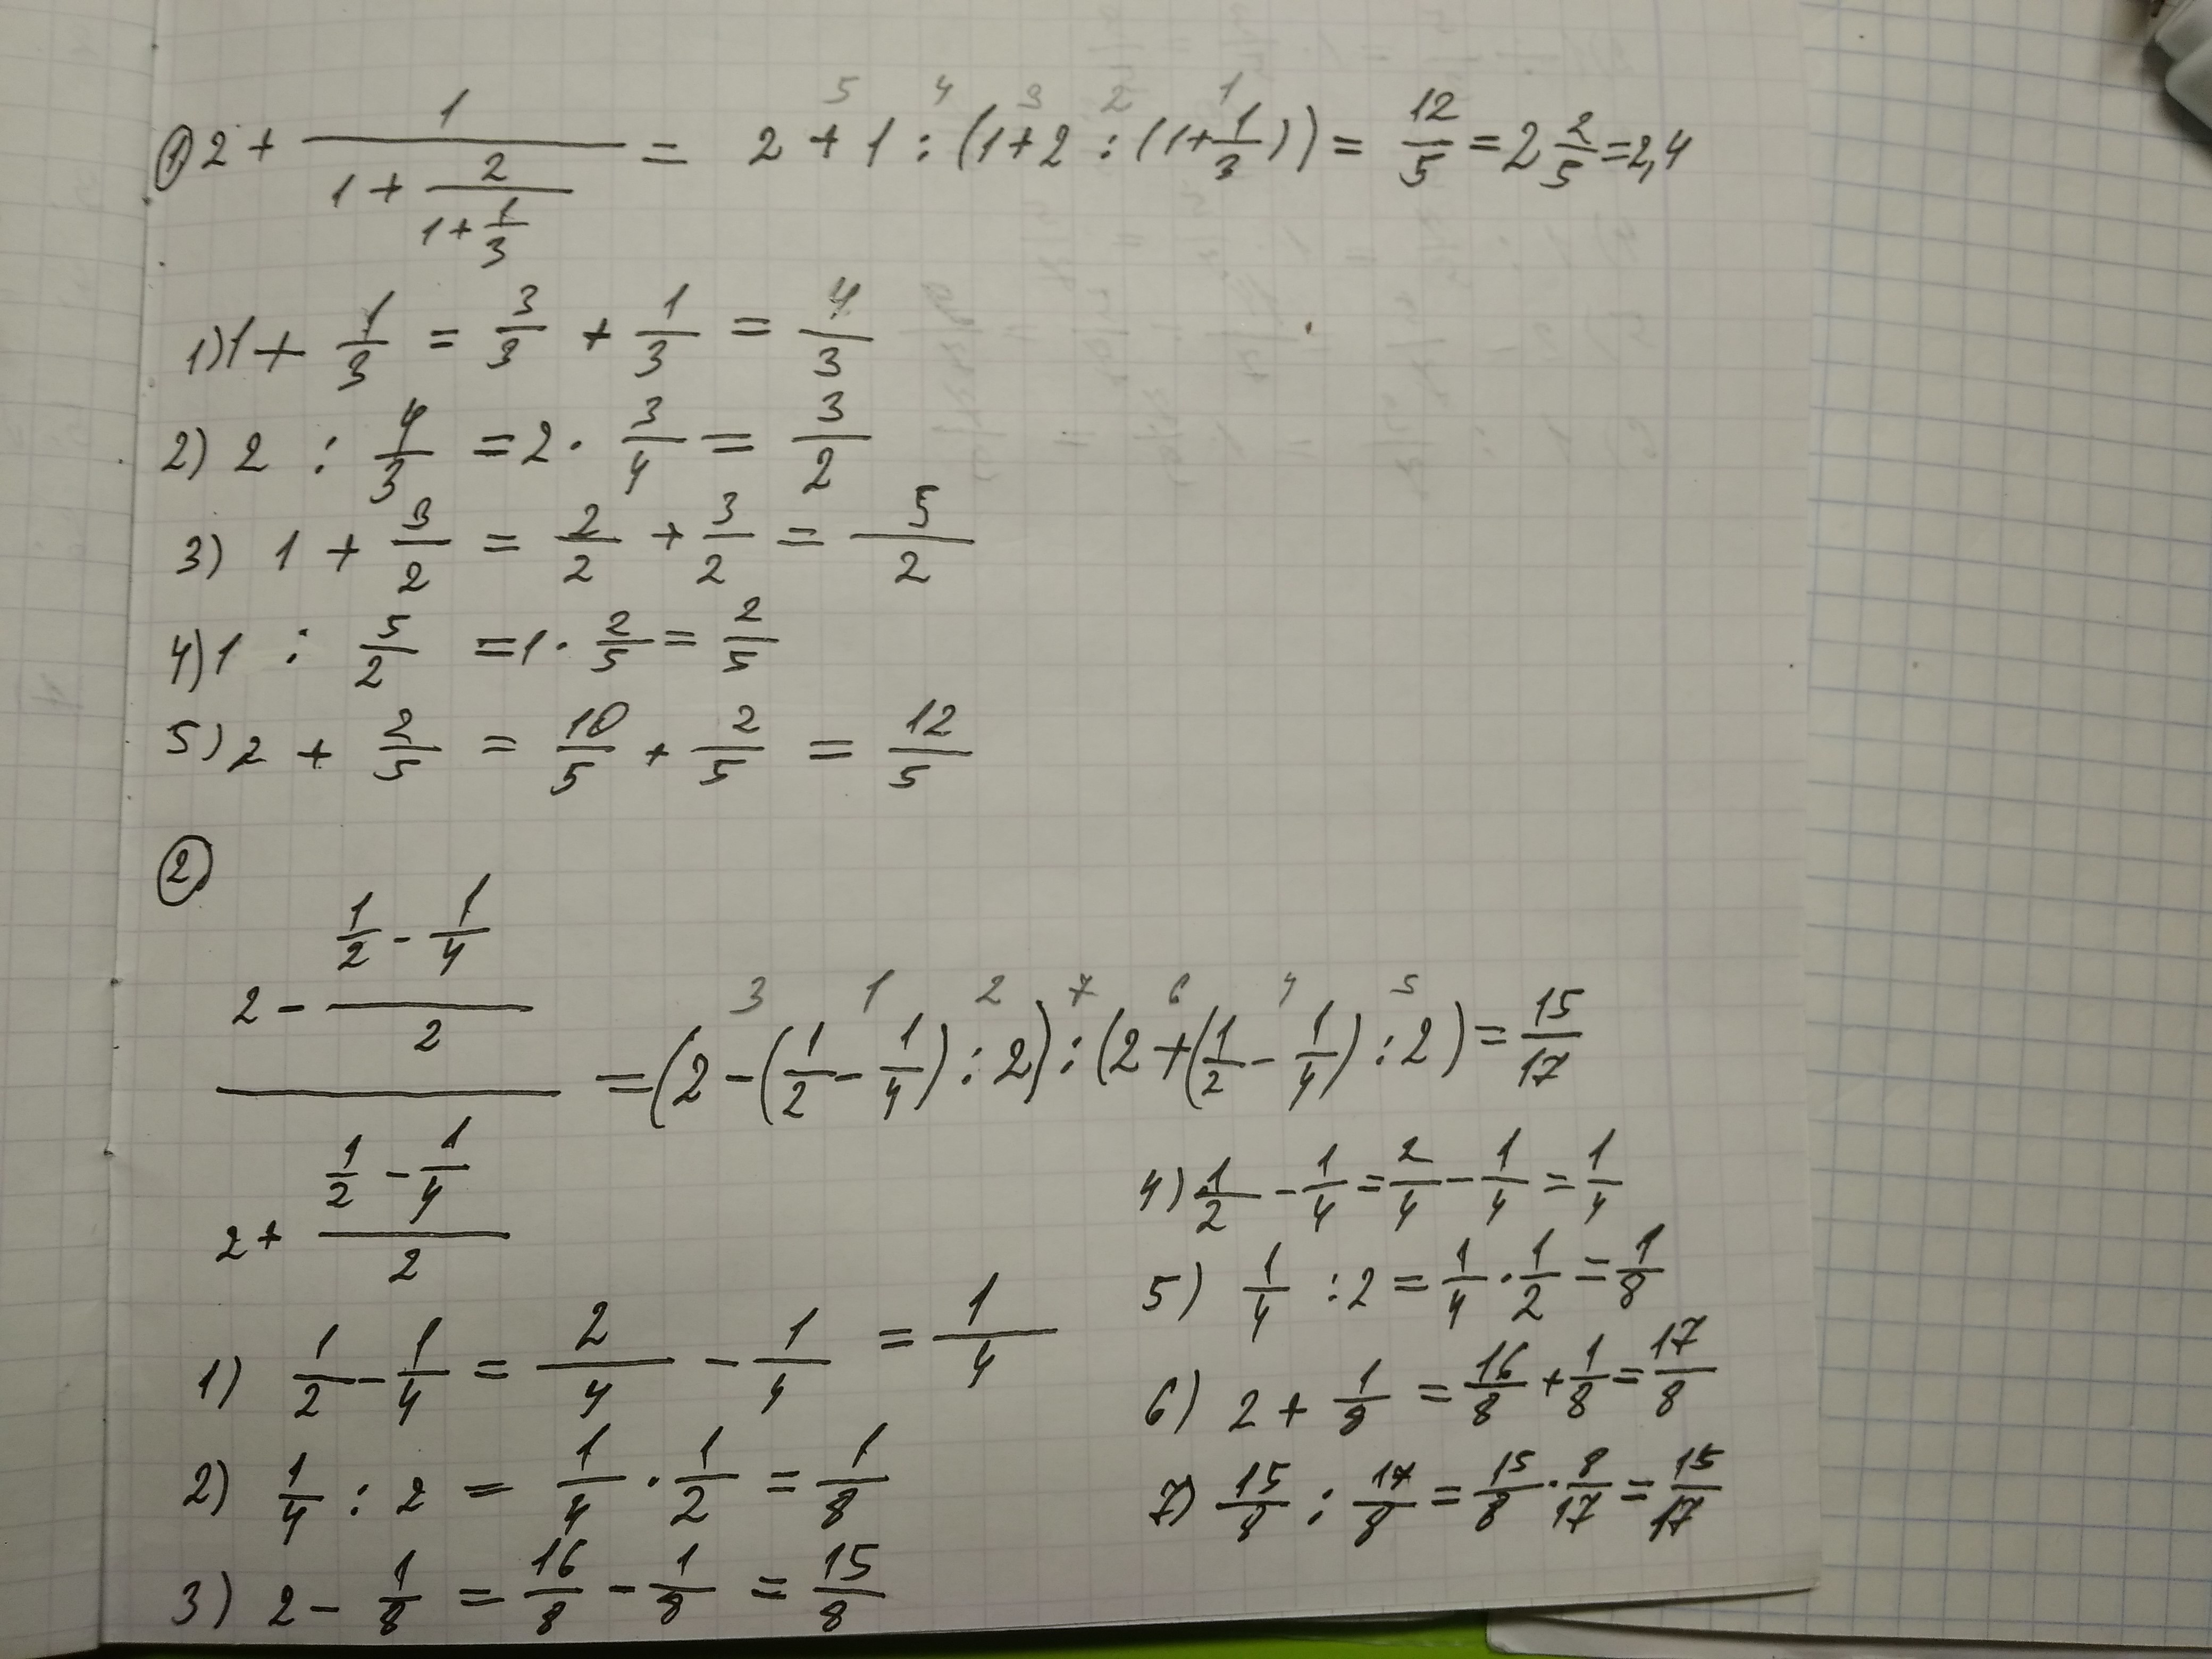 ① 2 + 1/(1 + 2/(1 + 1/3)) = 2 + 1 : (1 + 2 : (1 + 1/3)) = 12/5 = 2 2/5 = 2,4
5 4 3 2 1
1) 1 + 1/3 = 3/3 + 1/3 = 4/3
2) 2 : 4/3 = 2 · 3/4 = 3/2
3) 1 + 3/2 = 2/2 + 3/2 = 5/2
4) 1 : 5/2 = 1 · 2/5 = 2/5
5) 2 + 2/5 = 10/5 + 2/5 = 12/5
②
3 1 2 7 6 4 5
(2 - (1/2 - 1/4)/2)/(2 + (1/2 - 1/4)/2) = (2 - (1/2 - 1/4) : 2) : (2 + (1/2 - 1/4) : 2) = 15/17
1) 1/2 - 1/4 = 2/4 - 1/4 = 1/4
2) 1/4 : 2 = 1/4 · 1/2 = 1/8
3) 2 - 1/8 = 16/8 - 1/8 = 15/8
4) 1/2 - 1/4 = 2/4 - 1/4 = 1/4
5) 1/4 : 2 = 1/4 · 1/2 = 1/8
6) 2 + 1/8 = 16/8 + 1/8 = 17/8
7) 15/8 : 17/8 = 15/8 · 8/17 = 15/17